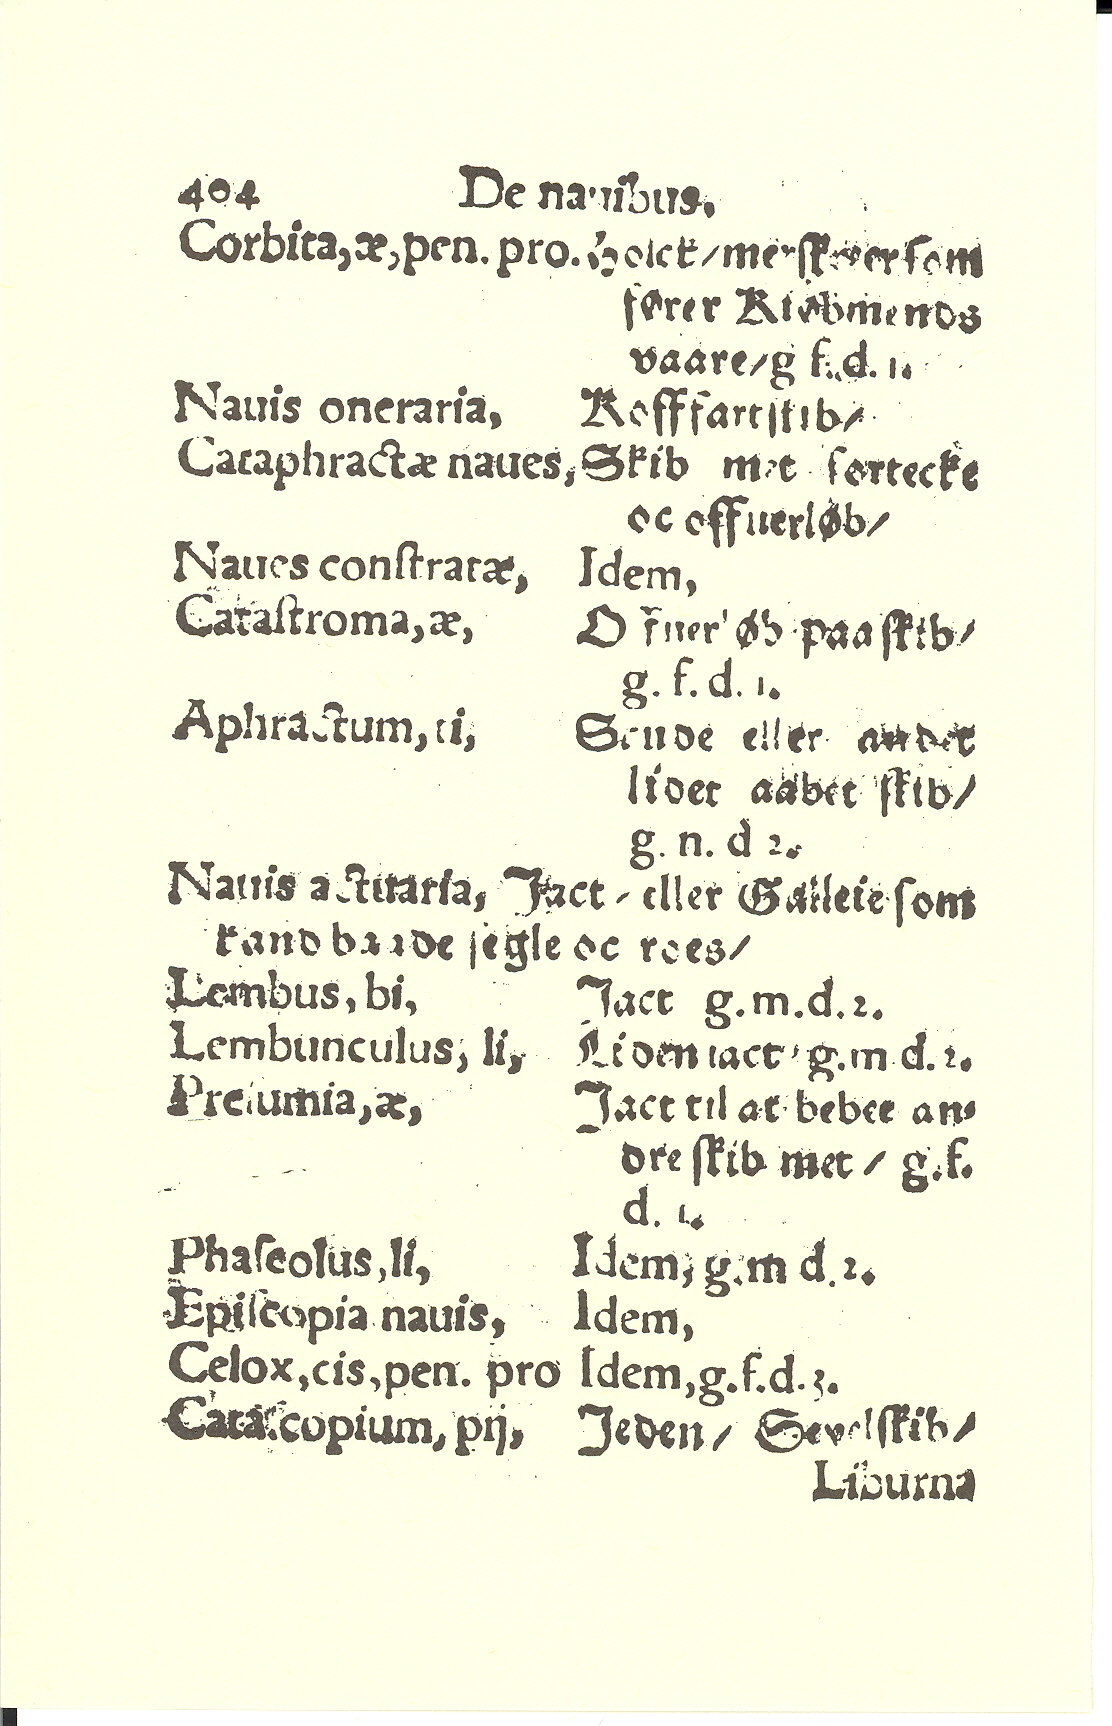 404 De nauibus.
Corbita,æ,pen. pro. Holck/merskver som
fører Kiøbmends
vaare/g f.d. 1.
Nauis oneraria, Kofffartskib/
Cataphractæ naues, Skib met fortecke
oc offuerløb/
Naues conſtratæ, Idem,
Cataſtroma,æ, Offuerløb paa ſkib/
g. f. d. 1.
Aphractum, ti, Scude eller andet
lidet aabet ſkib/
g. n. d 2.
Nauis actuaria, Jact / eller Galleie ſom
kand baade ſegle oc roes/
Lembus, bi, Jact g.m.d.2.
Lembunculus, li, Liden iact g.m d.2.
Preiumia,æ, Jact til at bebee an-
dre ſkib met / g.f.
d. 1.
Phaſeolus,li, Idem, g.m d.2.
Epiſcopia nauis, Idem,
Celox,cis,pen. pro Idem,g.f.d.3.
Cataſcopium, pij, Jeden/ ſkib/
Liburna